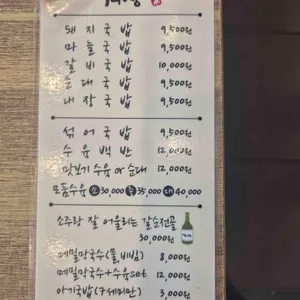 돼지국밥 9,500원
마늘국밥 9,500원
갈비국밥 10,000원
순대국밥 9,500원
내장국밥 9,500원
섞어국밥 9,500원
수육백반 12,000원
맛보기수육 or 순대 12,000원
모듬수육 소 30,000 중 35,000 대 40,000
소주랑 잘 어울리는 갈순전골
30,000원
메밀막국수(물,비빔) 8,000원
메밀막국수+수육set 12,000원
아기국밥(7세미만) 3,000원